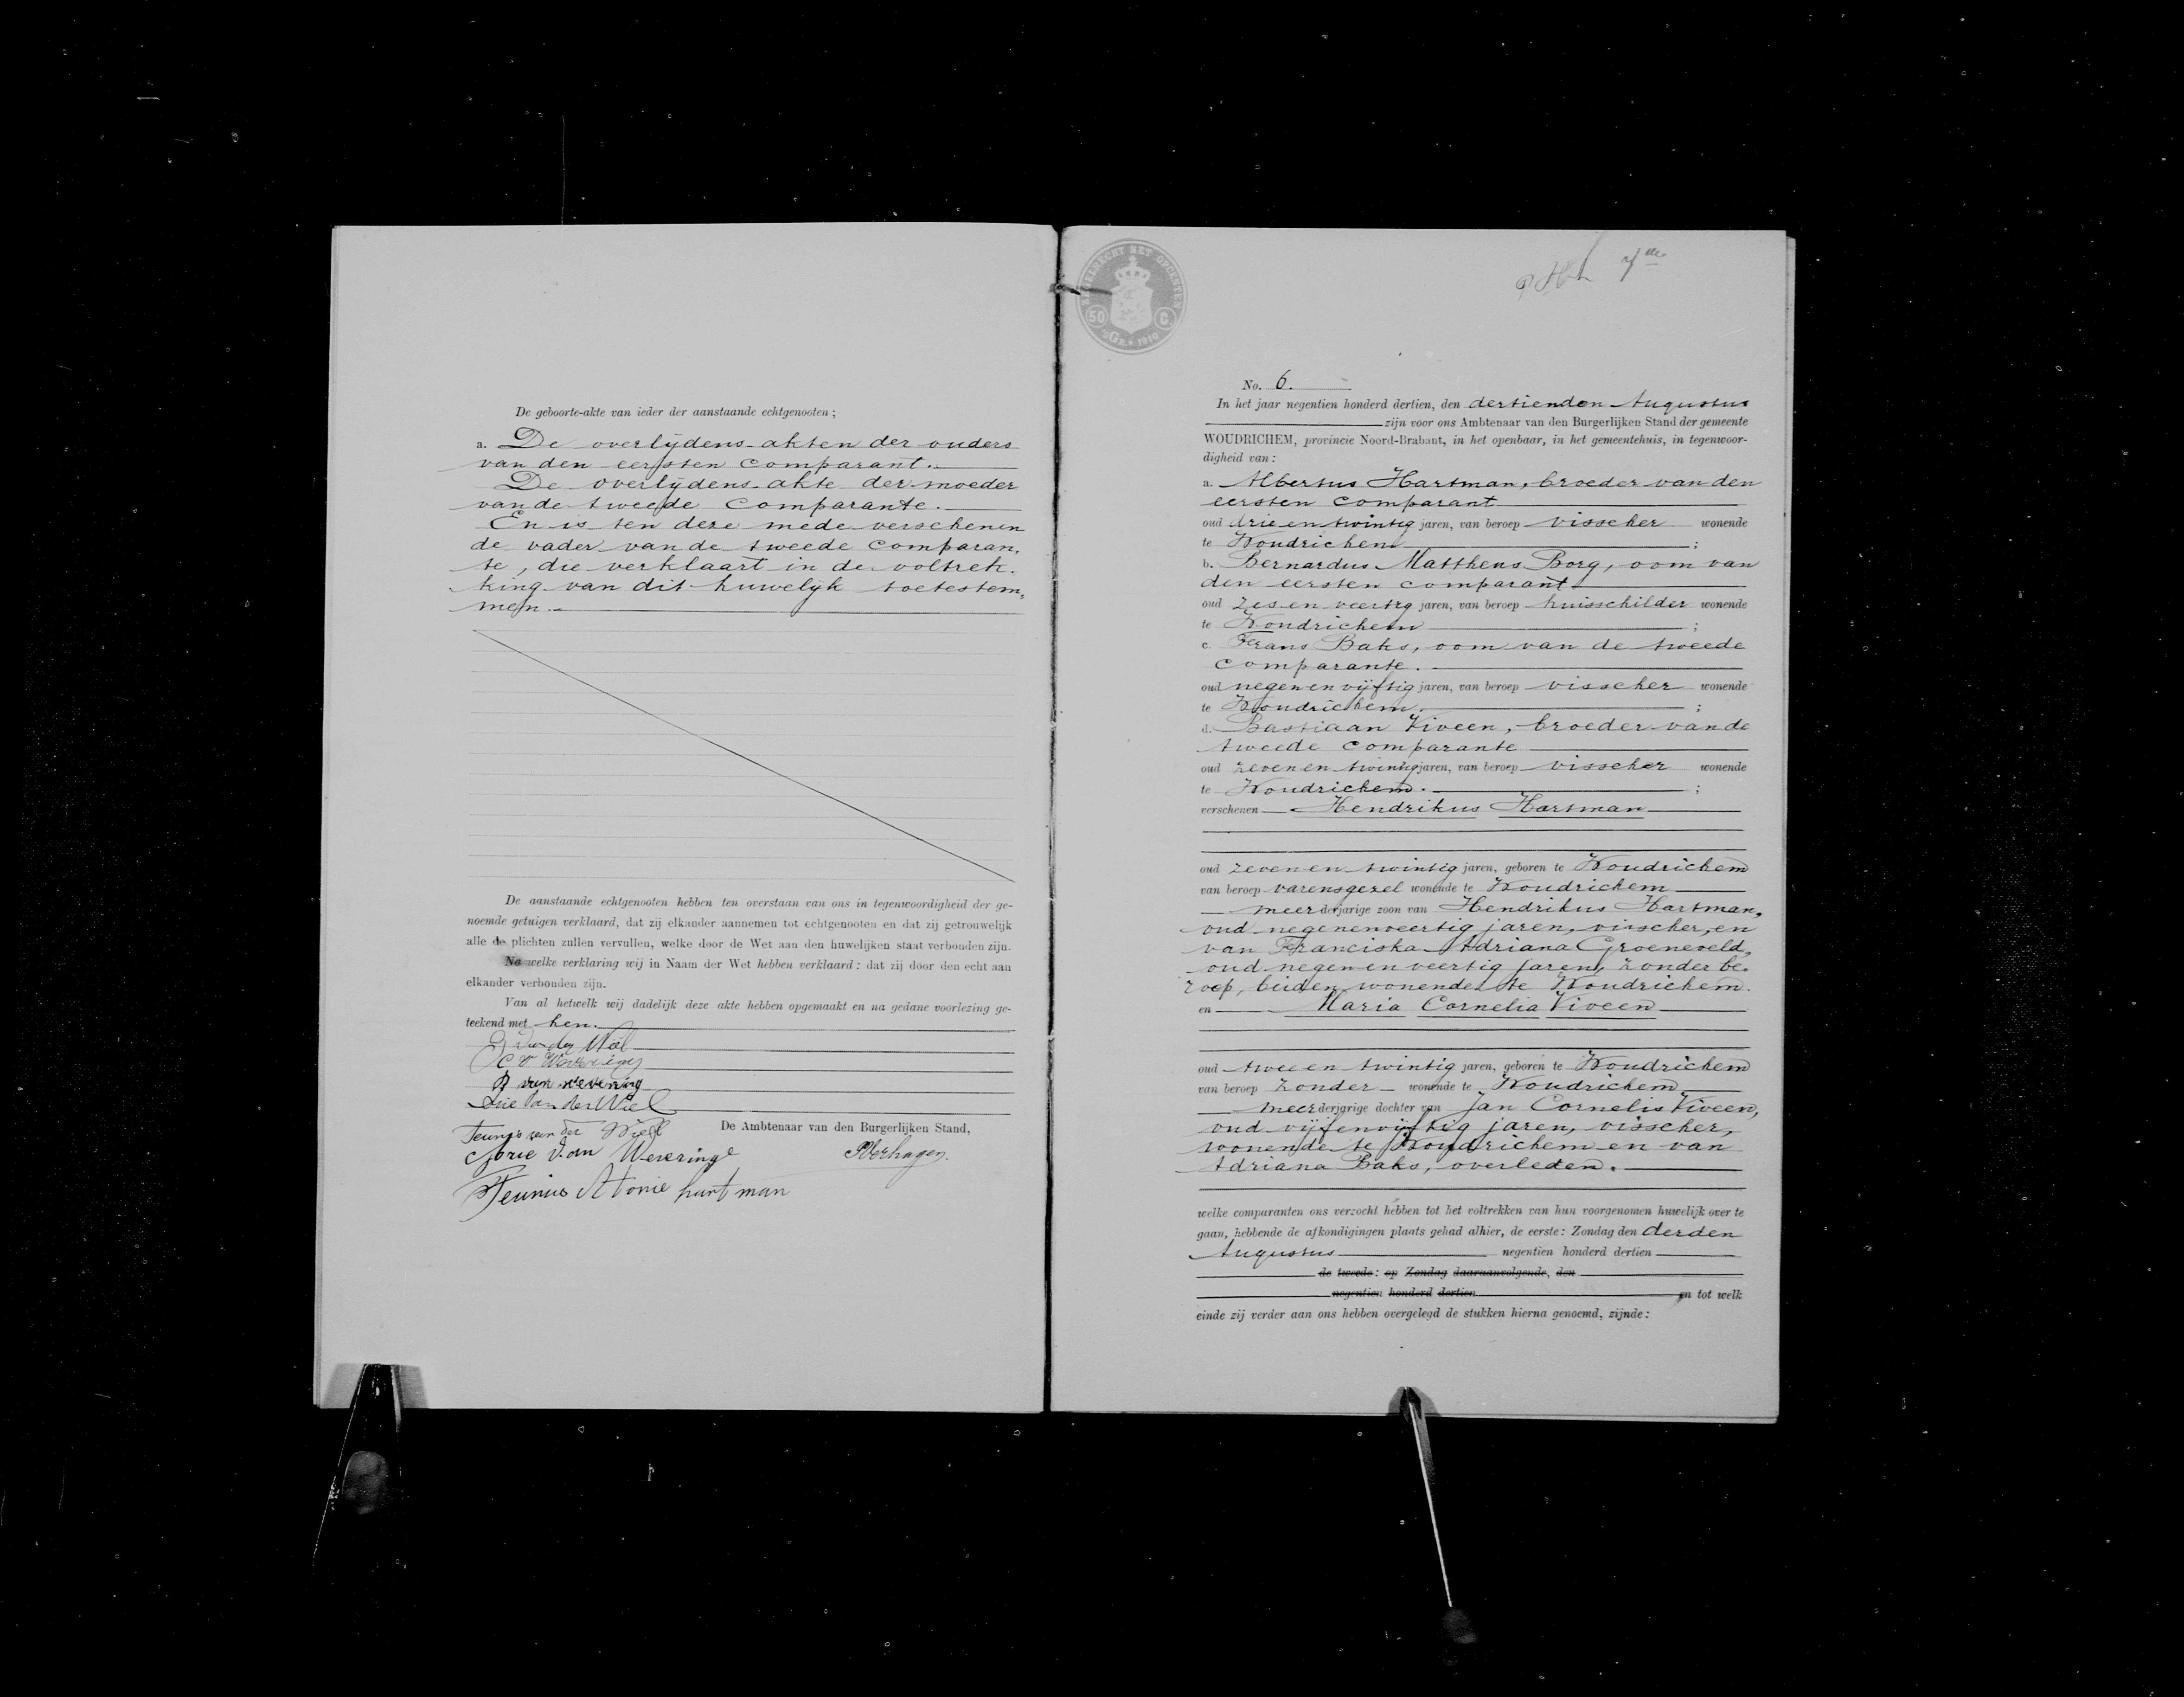 De geboorte-akte van ieder der aanstaande echtgenooten;
a. De overlijdens-akten der ouders
van den eersten comparant.
De overlijdens-akte der moeder
van de tweede comparante.
En is ten deze mede verschenen
de vader van de tweede comparan-
te, die verklaart in de voltrek-
king van dit huwelijk toetestem-
men.
De aanstaande echtgenooten hebben ten overstaan van ons in tegenwoordigheid der ge-
noemde getuigen verklaard, dat zij elkander aannemen tot echtgenooten en dat zij getrouwelijk
alle de plichten zullen vervullen, welke door de Wet aan den huwelijken staat verbonden zijn.
Na welke verklaring wij in Naam der Wet hebben verklaard: dat zij door den echt aan
elkander verbonden zijn.
Van al hetwelk wij dadelijk deze akte hebben opgemaakt en na gedane voorlezing ge-
teekend met hen.
van der Wiel
C v Weveringe
van wevering
Arie van der Wiel
Teunis van der Wiel
De Ambtenaar van den Burgerlijken Stand,
van Weveringe
PVerhagen.
Teunus Atonie hartman
50 C.
1910
No. 6.
In het jaar negentien honderd dertien, den dertienden Augustus
zijn voor ons Ambtenaar van den Burgerlijken Stand der gemeente
WOUDRICHEM, provincie Noord-Brabant, in het openbaar, in het gemeentehuis, in tegenwoor-
digheid van:
a. Albertus Hartman, broeder van den
eersten comparant
oud drie en twintig jaren, van beroep visscher wonende
te Woudrichem;
b. Bernardus Mattheus Borg, oom van
den eersten comparant
oud zes en veertig jaren, van beroep huisschilder wonende
te Woudrichem;
c. Frans Baks, oom van de tweede
comparante.
oud negen en vijftig jaren, van beroep visscher wonende
te Woudrichem.;
d. Bastiaan Viveen, broeder van de
tweede comparante
oud zeven en twintig jaren, van beroep visscher wonende
te Woudrichem.;
verschenen Hendrikus Hartman
oud zeven en twintig jaren, geboren te Woudrichem
van beroep varensgezel wonende te Woudrichem
meerderjarige zoon van Hendrikus Hartman,
oud negenenveertig jaren, visscher, en
van Franciska Adriana Groeneveld,
oud negen en veertig jaren, zonder be-
roep, beiden wonende te Woudrichem.
en Maria Cornelia Viveen
oud twee en twintig jaren, geboren te Woudrichem
van beroep zonder wonende te Woudrichem
meerderjarige dochter van Jan Cornelis Viveen,
oud vijfenvijftig jaren, visscher,
wonende te Woudrichem en van
Adriana Baks, overleden.
welke comparanten ons verzocht hebben tot het voltrekken van hun voorgenomen huwelijk over te
gaan, hebbende de afkondigingen plaats gehad alhier, de eerste: Zondag den derden
Augustus negentien honderd dertien
de tweede: op Zondag daaraanvolgende, den
negentien honderd dertien en tot welk
einde zij verder aan ons hebben overgelegd de stukken hierna genoemd, zijnde: